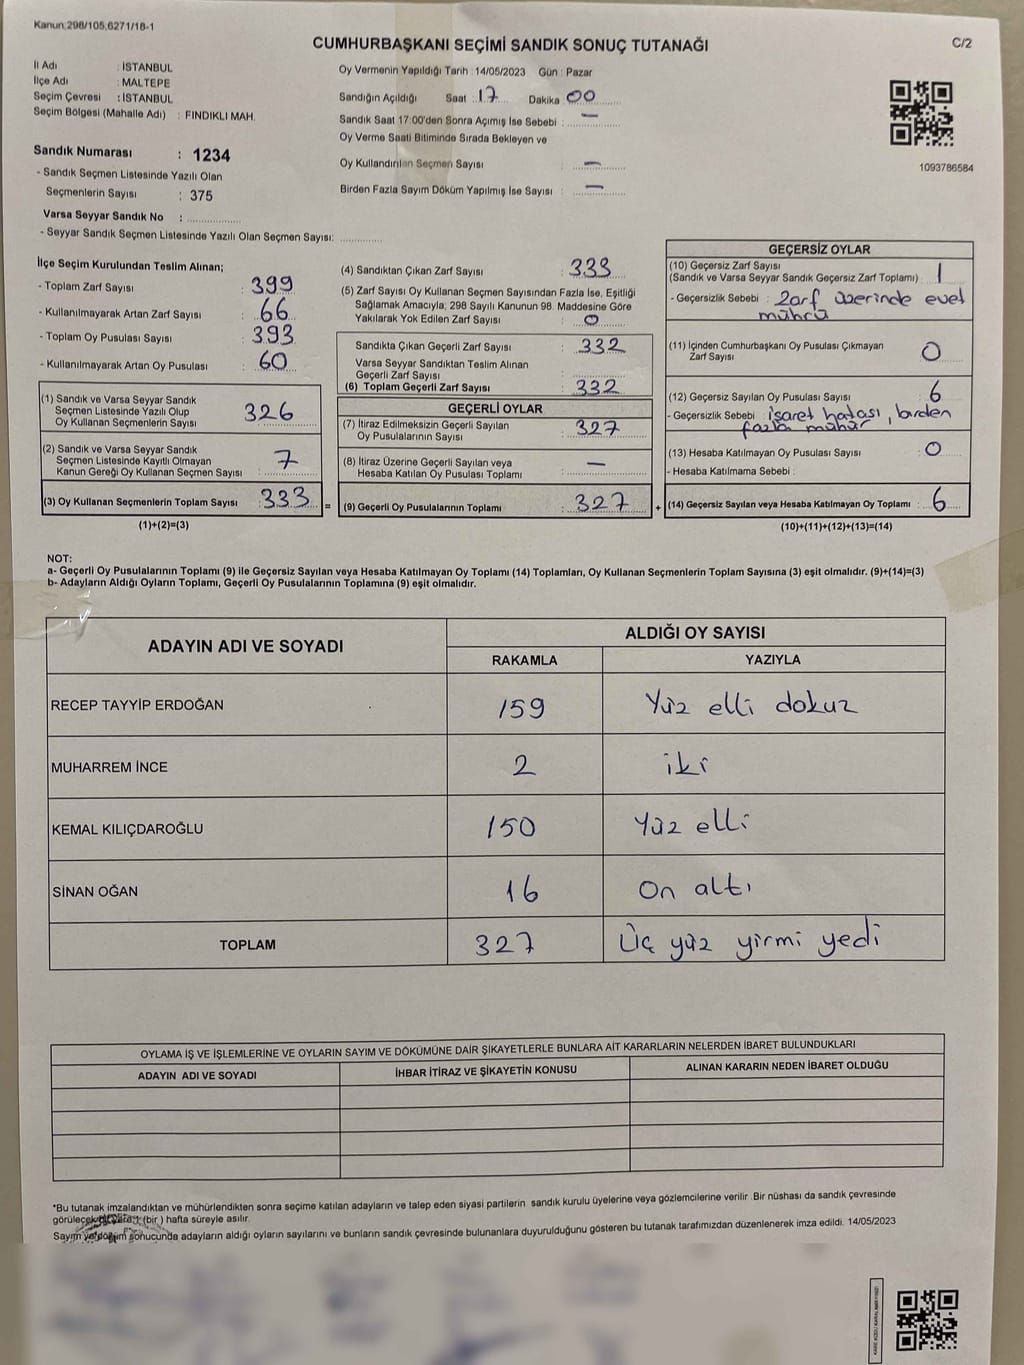 Kanun:298/105,6271/18-1
CUMHURBAŞKANI SEÇİMİ SANDIK SONUÇ TUTANAĞI
C/2
İl Adı : İSTANBUL
İlçe Adı : MALTEPE
Seçim Çevresi : İSTANBUL
Seçim Bölgesi (Mahalle Adı) : FINDIKLI MAH.
Oy Vermenin Yapıldığı Tarih : 14/05/2023 Gün : Pazar
Sandığın Açıldığı Saat : 17 Dakika : 00
Sandık Saat 17:00'den Sonra Açımış İse Sebebi : —
Oy Verme Saati Bitiminde Sırada Bekleyen ve
Oy Kullandırılan Seçmen Sayısı : —
Birden Fazla Sayım Döküm Yapılmış İse Sayısı : —
1093786584
Sandık Numarası : 1234
- Sandık Seçmen Listesinde Yazılı Olan
Seçmenlerin Sayısı : 375
Varsa Seyyar Sandık No : ..............
- Seyyar Sandık Seçmen Listesinde Yazılı Olan Seçmen Sayısı: ..............
İlçe Seçim Kurulundan Teslim Alınan;
- Toplam Zarf Sayısı : 399
- Kullanılmayarak Artan Zarf Sayısı : 66
- Toplam Oy Pusulası Sayısı : 393
- Kullanılmayarak Artan Oy Pusulası : 60
(1) Sandık ve Varsa Seyyar Sandık
Seçmen Listesinde Yazılı Olup
Oy Kullanan Seçmenlerin Sayısı : 326
(2) Sandık ve Varsa Seyyar Sandık
Seçmen Listesinde Kayıtlı Olmayan
Kanun Gereği Oy Kullanan Seçmen Sayısı : 7
(3) Oy Kullanan Seçmenlerin Toplam Sayısı : 333 =
(1)+(2)=(3)
(4) Sandıktan Çıkan Zarf Sayısı : 333
(5) Zarf Sayısı Oy Kullanan Seçmen Sayısından Fazla İse, Eşitliği
Sağlamak Amacıyla; 298 Sayılı Kanunun 98. Maddesine Göre
Yakılarak Yok Edilen Zarf Sayısı : 0
Sandıkta Çıkan Geçerli Zarf Sayısı : 332
Varsa Seyyar Sandıktan Teslim Alınan
Geçerli Zarf Sayısı
(6) Toplam Geçerli Zarf Sayısı : 332
GEÇERLİ OYLAR
(7) İtiraz Edilmeksizin Geçerli Sayılan
Oy Pusulalarının Sayısı : 327
(8) İtiraz Üzerine Geçerli Sayılan veya
Hesaba Katılan Oy Pusulası Toplamı : —
(9) Geçerli Oy Pusulalarının Toplamı : 327 +
GEÇERSİZ OYLAR
(10) Geçersiz Zarf Sayısı
(Sandık ve Varsa Seyyar Sandık Geçersiz Zarf Toplamı) : 1
- Geçersizlik Sebebi : Zarf üzerinde evet
mührü
(11) İçinden Cumhurbaşkanı Oy Pusulası Çıkmayan
Zarf Sayısı : 0
(12) Geçersiz Sayılan Oy Pusulası Sayısı : 6
- Geçersizlik Sebebi : işaret hatası, birden
fazla mühür
(13) Hesaba Katılmayan Oy Pusulası Sayısı : 0
- Hesaba Katılmama Sebebi :
(14) Geçersiz Sayılan veya Hesaba Katılmayan Oy Toplamı : 6
(10)+(11)+(12)+(13)=(14)
NOT:
a- Geçerli Oy Pusulalarının Toplamı (9) ile Geçersiz Sayılan veya Hesaba Katılmayan Oy Toplamı (14) Toplamları, Oy Kullanan Seçmenlerin Toplam Sayısına (3) eşit olmalıdır. (9)+(14)=(3)
b- Adayların Aldığı Oyların Toplamı, Geçerli Oy Pusulalarının Toplamına (9) eşit olmalıdır.
ADAYIN ADI VE SOYADI
ALDIĞI OY SAYISI
RAKAMLA YAZIYLA
RECEP TAYYİP ERDOĞAN 159 Yüz elli dokuz
MUHARREM İNCE 2 iki
KEMAL KILIÇDAROĞLU 150 Yüz elli
SİNAN OĞAN 16 On altı
TOPLAM 327 Üç yüz yirmi yedi
OYLAMA İŞ VE İŞLEMLERİNE VE OYLARIN SAYIM VE DÖKÜMÜNE DAİR ŞİKAYETLERLE BUNLARA AİT KARARLARIN NELERDEN İBARET BULUNDUKLARI
ADAYIN ADI VE SOYADI İHBAR İTİRAZ VE ŞİKAYETİN KONUSU ALINAN KARARIN NEDEN İBARET OLDUĞU
*Bu tutanak imzalandıktan ve mühürlendikten sonra seçime katılan adayların ve talep eden siyasi partilerin sandık kurulu üyelerine veya gözlemcilerine verilir .Bir nüshası da sandık çevresinde
görülecek (bir ) hafta süreyle asılır.
Sayım ve döküm sonucunda adayların aldığı oyların sayılarını ve bunların sandık çevresinde bulunanlara duyurulduğunu gösteren bu tutanak tarafımızdan düzenlenerek imza edildi. 14/05/2023